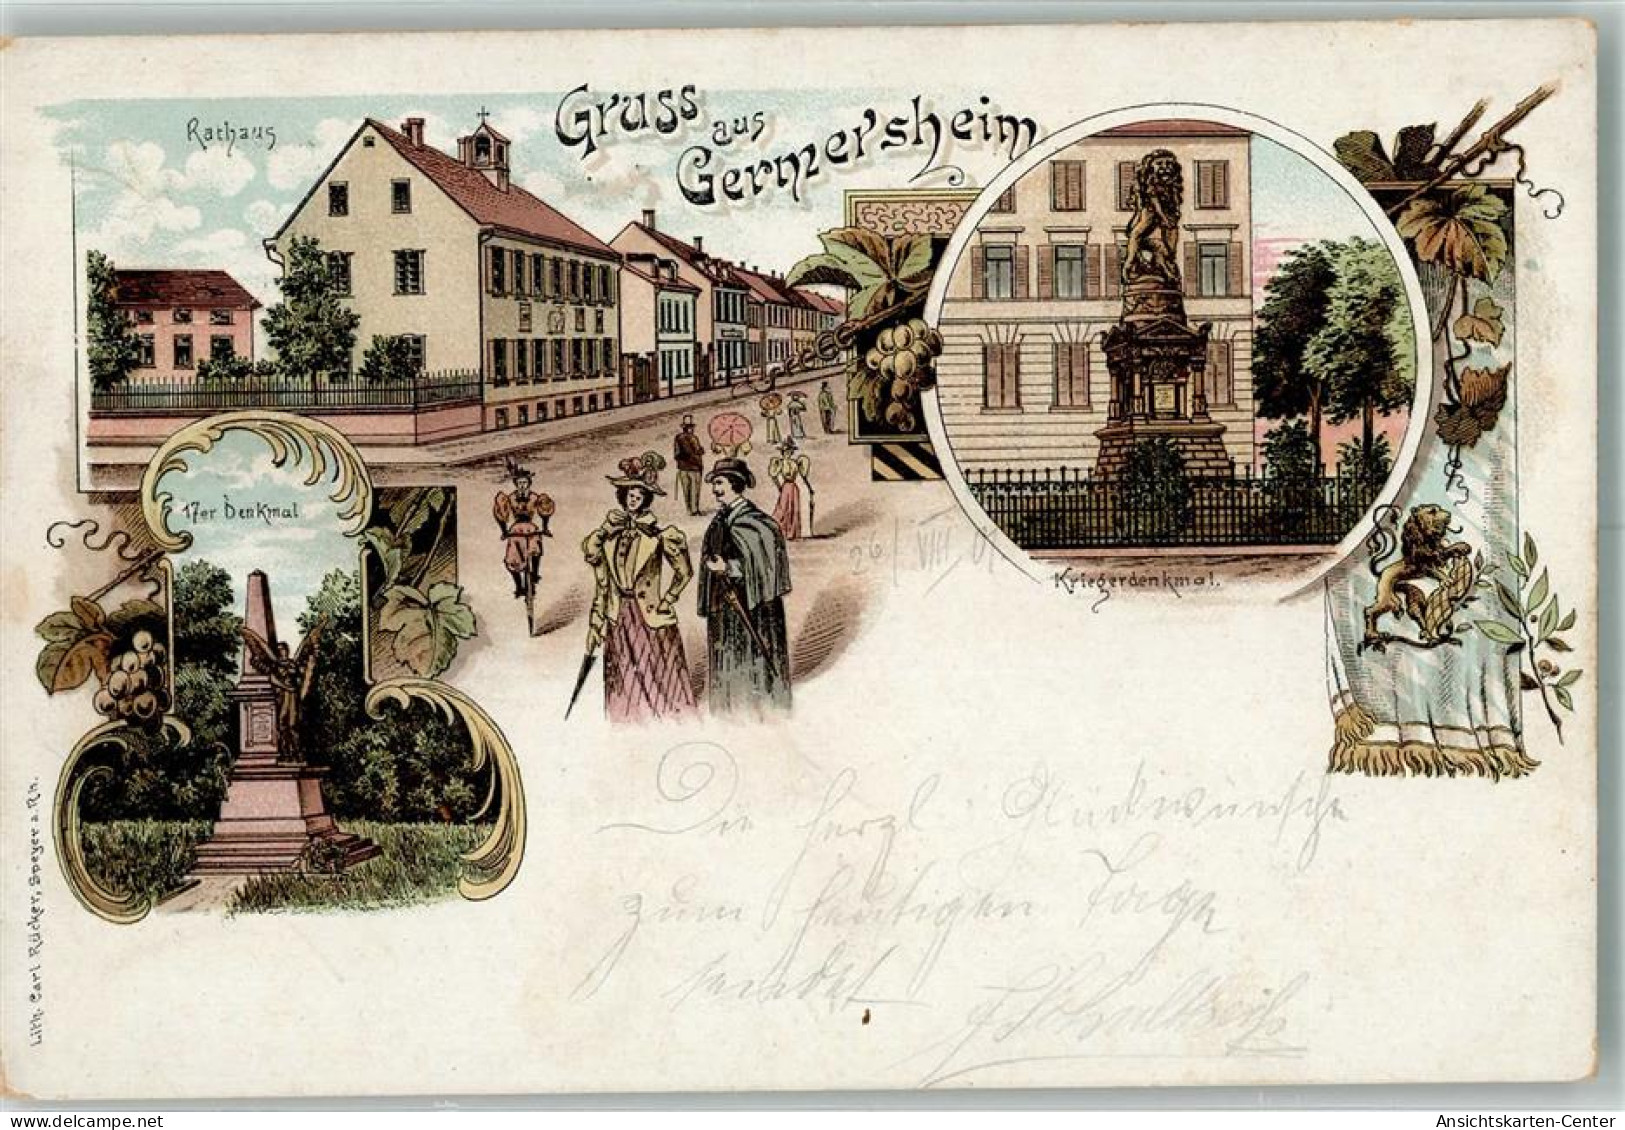 Gruss
aus
Germersheim
Rathaus
17er Denkmal
Kriegerdenkmal.
26/VIII. 01
Die herzl. Glückwünsche
zum heutigen Tage
sendet
Lith. Carl Rücker, Speyer a. Rh.
Ansichtskarten-Center
www.delcampe.net